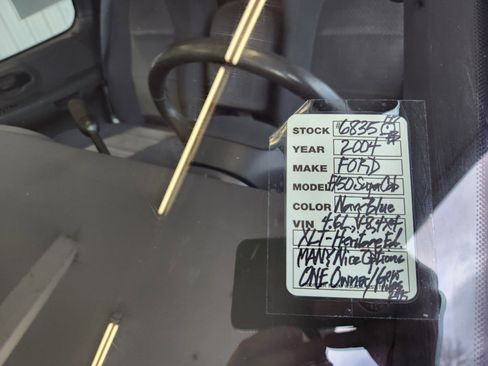 STOCK 6835
YEAR 2004
MAKE FORD
MODEL F150 SuperCab
COLOR Navy Blue
VIN 4.6L V-8, 4x4
XLT-Heritage Ed.
MANY Nice Options
ONE Owner/